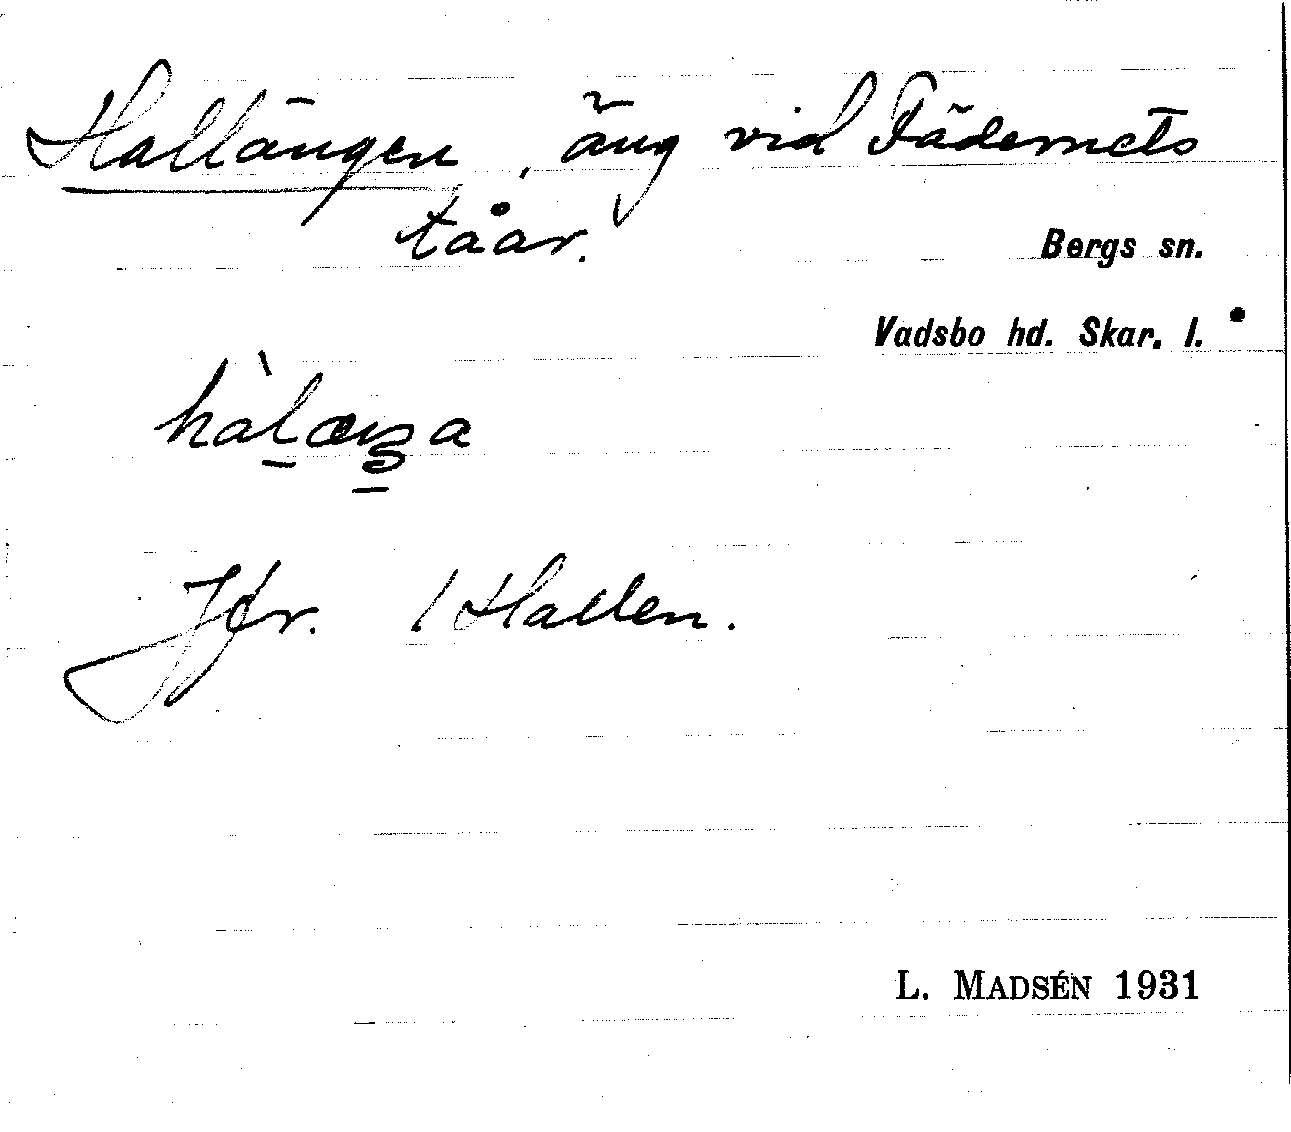 Hallängen, äng vid Fädernets
tåar.
Bergs sn.
Vadsbo hd. Skar. l.
Jfr. Hallen.
L. MADSÉN 1931